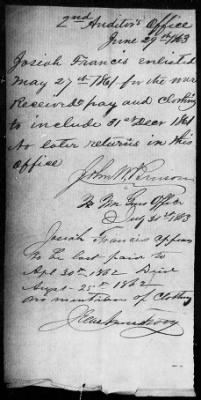 2nd Auditor's Office
June 29th 1863
Josiah Francis enlisted
May 27th 1861 for the war
Received pay and clothing
to include 31st Decr 1861
No later returns in this
office
John W
Josiah Francis appears
to be last paid to
Apl 30th 1862 Died
Augs 25th 1862
no mention of clothing